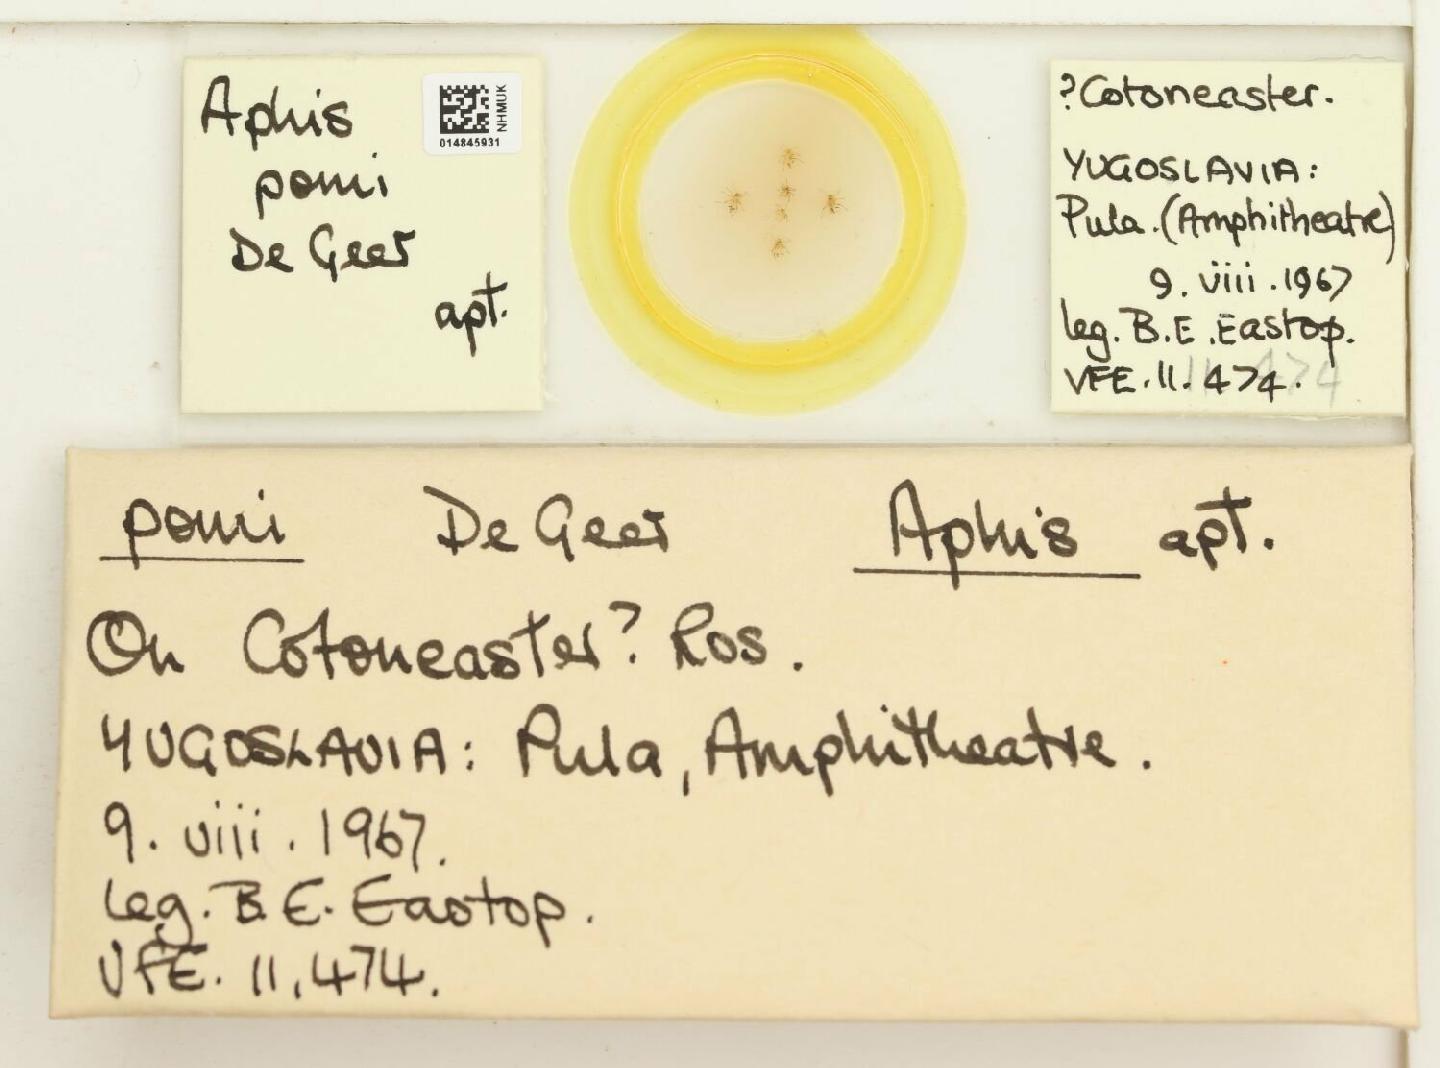 Aphis
pomi
De Geer
apt.
NHMUK
014845931
?Cotoneaster.
YUGOSLAVIA:
Pula. (Amphitheatre)
9. viii. 1967
leg. B.E. Eastop.
VFE. 11. 474.
pomi De Geer Aphis apt.
On Cotoneaster? Ros.
YUGOSLAVIA: Pula, Amphitheatre.
9. viii. 1967.
Leg. B.E. Eastop.
VFE. 11,474.